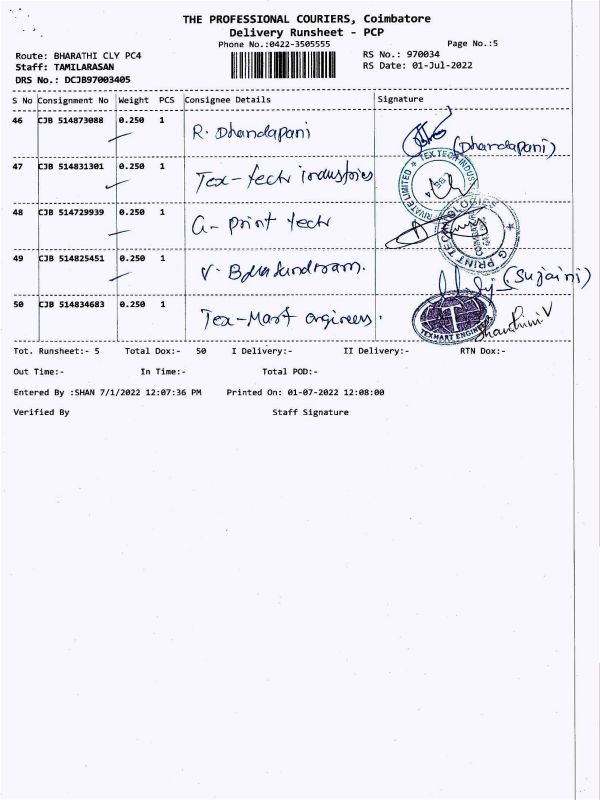 THE PROFESSIONAL COURIERS, Coimbatore
Delivery Runsheet - PCP
Phone No.:0422-3505555 Page No.:5
Route: BHARATHI CLY PC4 RS No.: 970034
Staff: TAMILARASAN RS Date: 01-Jul-2022
DRS No.: DCJB97003405
S No Consignment No Weight PCS Consignee Details Signature
46 CJB 514873088 0.250 1 R. Dhandapani (Dhandapani)
47 CJB 514831301 0.250 1 Tex-tech industries
48 CJB 514729939 0.250 1 G-Print tech
49 CJB 514825451 0.250 1 V. (Sujaini)
50 CJB 514834683 0.250 1 Tex-Mart engineers.
TEXMART ENGINEERS
Tot. Runsheet:- 5 Total Dox:- 50 I Delivery:- II Delivery:- RTN Dox:-
Out Time:- In Time:- Total POD:-
Entered By :SHAN 7/1/2022 12:07:36 PM Printed On: 01-07-2022 12:08:00
Verified By Staff Signature